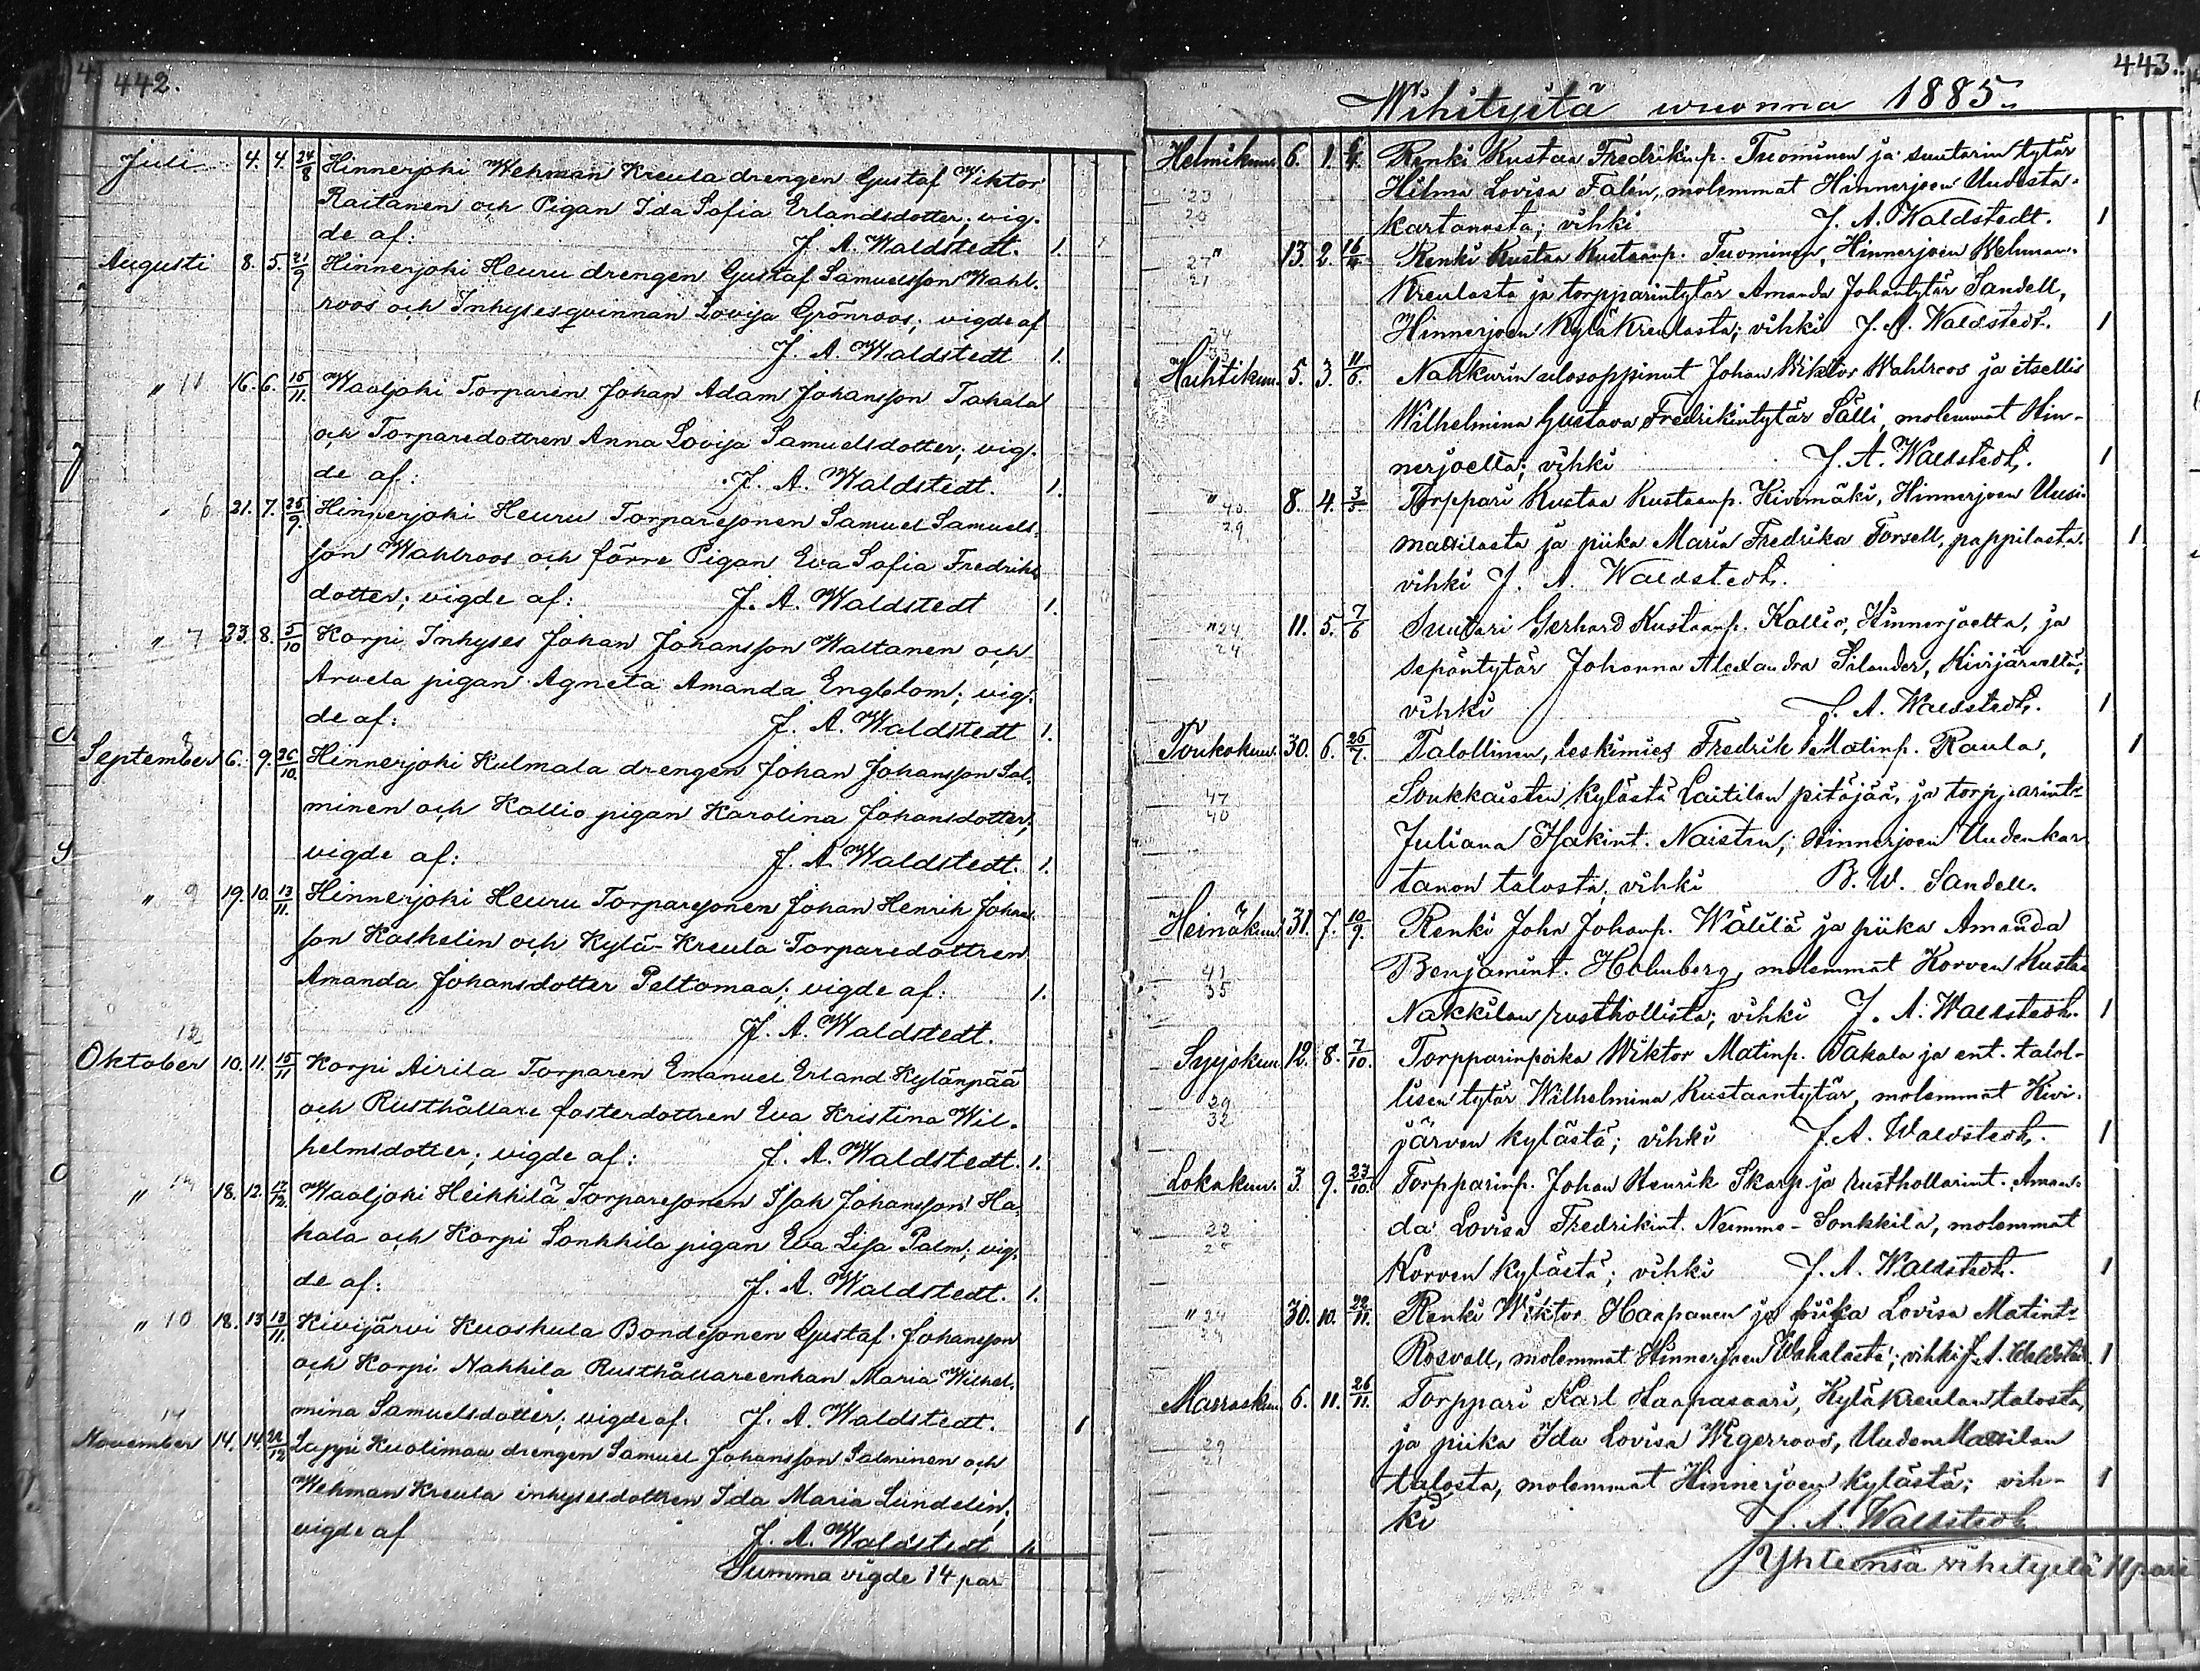 442.
Juli 4. 4. 24/8 Hinnerjoki Wehman Kreula drengen Gustaf Viktor
Raitanen och Pigan Ida Sofia Erlandsdotter; vig-
de af: J. A. Waldstedt. 1.
Augusti 8. 5. 21/9 Hinnerjoki Heuru drengen Gustaf Samuelsson Wahl-
roos och Inhysesqvinnan Lovisa Grönroos; vigde af
J. A. Waldstedt 1.
" 11 16. 6. 15/11 Waaljoki Torparen Johan Adam Johansson Takala
och Torparedottren Anna Lovisa Samuelsdotter; vig-
de af: J. A. Waldstedt. 1.
" 6 21. 7. 25/9 Hinnerjoki Heuru Torparesonen Samuel Samuels-
son Wahlroos och förre Pigan Eva Sofia Fredriks
dotter; vigde af: J. A. Waldstedt 1.
" 7 23. 8. 5/10 Korpi Inhyses Johan Johansson Waltanen och
Arvela pigan Agneta Amanda Engblom; vig-
de af: J. A. Waldstedt 1.
8
September 6. 9. 26/10 Hinnerjoki Kulmala drengen Johan Johansson Sal-
minen och Kallio pigan Karolina Johansdotter;
vigde af: J. A. Waldstedt. 1.
" 9 19. 10. 13/11 Hinnerjoki Heuru Torparesonen Johan Henrik Johans-
son Koskelin och Kylä-Kreula Torparedottren
Amanda Johansdotter Peltomaa; vigde af: 1.
J. A. Waldstedt.
12
Oktober 10. 11. 15/11 Korpi Airila Torparen Emanuel Erland Kylänpää
och Rusthållare fosterdottren Eva Kristina Wil-
helmsdotter; vigde af: J. A. Waldstedt. 1.
" 18. 12. 17/12 Waaljoki Heikkilä Torparesonen Isak Johansson Ha-
kala och Korpi Sonkkila pigan Eva Lisa Palm; vig-
de af: J. A. Waldstedt. 1.
" 10 18. 13 13/11 Kivijärvi Kuoskula Bondesonen Gustaf Johansson
och Korpi Nakkila Rusthållareenkan Maria Wilhel-
mina Samuelsdotter; vigde af. J. A. Waldstedt. 1
14
November 14. 14. 22/12 Lappi Kuolimaa drengen Samuel Johansson Salminen och
Wehman Kreula inhysesdottren Ida Maria Lundelin;
vigde af J. A. Waldstedt 1.
Summa vigde 14 par
443.
Wihityitä wuonna 1885.
Helmikuu. 6. 1. Renki Kustaa Fredrikinp. Tuominen ja suutarin tytär
23 Hilma Lovisa Falén, molemmat Hinnerjoen Uudesta-
20 kartanosta; vihki J. A. Waldstedt. 1
" 13. 2. 16/4 Renki Kustaa Kustaanp. Tuominen, Hinnerjoen Wehman-
27
21 Kreulasta ja torpparintytär Amanda Johantytär Sandell,
34 Hinnerjoen Kylä Kreulasta; vihki J. A. Waldstedt. 1
33
Huhtikuu. 5. 3. 11/6. Nahkurin ulosoppinut Johan Wiktor Wahlroos ja itsellis
Wilhelmina Gustava Fredrikintytär Sälli, molemmat Hin-
nerjoelta; vihki J. A. Waldstedt. 1
" 8. 4. 3/5 Torppari Kustaa Kustaanp. Kivimäki, Hinnerjoen Uusi-
40.
29. maxilasta ja piika Maria Fredrika Forsell, pappilasta. 1
vihki J. A. Waldstedt.
" 24. 11. 5. 7/6 Suutari Gerhard Kustaanp. Kallio, Hinnerjoelta, ja
24 sepäntytär Johanna Alexandra Silander, Kivijärveltä;
vihki J. A. Waldstedt. 1
Toukokuu. 30. 6. 26/7. Talollinen, leskimies Fredrik Matinp. Raula, 1
47 Soukkaisten kylästä Laitilan pitäjää, ja torpparint:
40 Juliana Isakint. Naisten, Hinnerjoen Uudenkar-
tanon talosta, vihki B. W. Sandell.
Heinäkuu. 31. 7. 10/9. Renki Johan Johanp. Wälilä ja piika Amanda
41 Benjamint. Holmberg, molemmat Korven Kusta
35
Nakkilan rusthollista; vihki J. A. Waldstedt. 1
Syysku. 12. 8. 7/10. Torpparinpoika Wiktor Matinp. Takala ja ent. talol-
29 lisen tytär Wilhelmina Kustaantytär, molemmat Kivi-
32
järven kylästä; vihki J. A. Waldstedt. 1
Lokakuu. 3. 9. 23/10. Torpparinp. Johan Henrik Skarp ja rusthollarint. Aman-
22 da Lovisa Fredrikint. Numme-Sonkkila, molemmat
Korven kylästä; vihki J. A. Waldstedt. 1
" 24 30. 10. 22/11. Renki Wiktor Haapanen ja piika Lovisa Matint:
24 Rosvall, molemmat Hinnerjoen Wahalasta; vihki J. A. Waldstedt 1
Marrasku. 6. 11. 26/11. Torppari Karl Haapasaari, Kyläkreulan talosta,
29
21 ja piika Ida Lovisa Wigerroos, Uuden Maxilan
talosta, molemmat Hinnerjoen kylästä; vih- 1
ki J. A. Waldstedt
Yhteensä vihityitä 11 paria